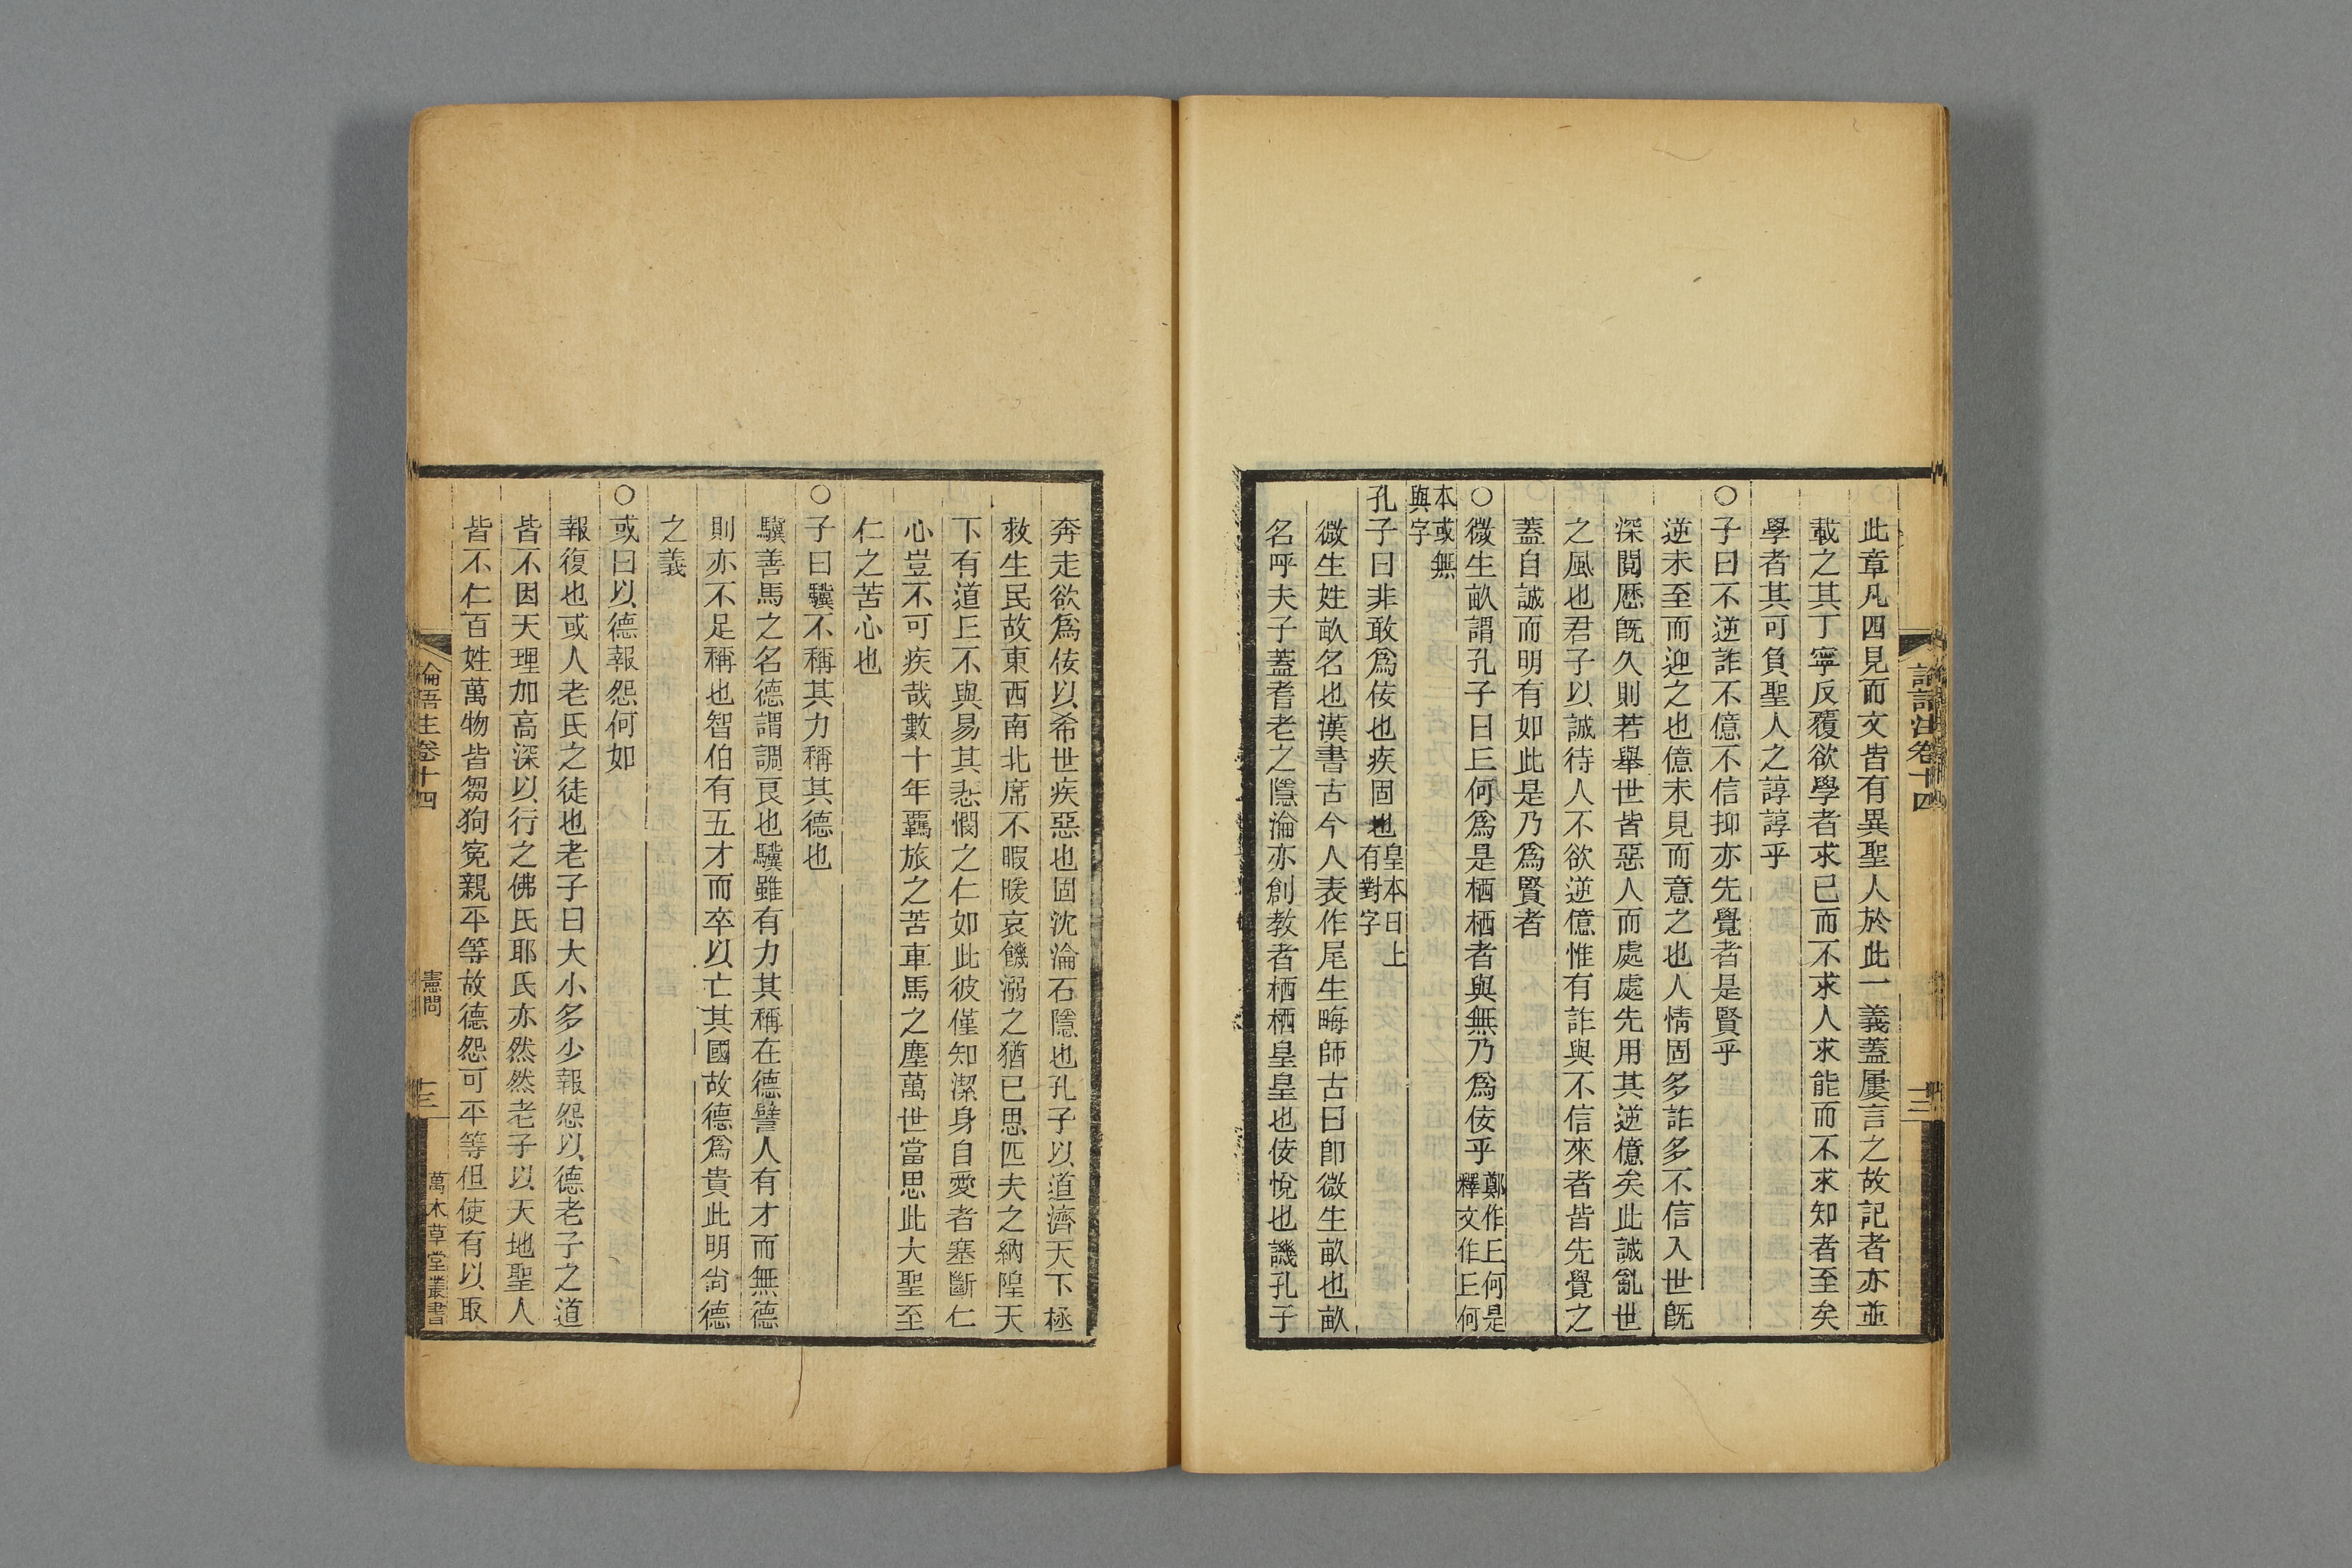 此章凡四見而文皆有異聖人於此一義蓋屢言之故記者亦並
載之其丁寧反覆欲學者求已而不求人求能而不求知者至矣
學者其可負聖人之諄諄乎
○子曰不逆詐不億不信抑亦先覺者是賢乎
逆未至而迎之也億未見而意之也人情固多詐多不信入世旣
深閱歷旣久則若舉世皆惡人而處處先用其逆億矣此誠亂世
之風也君子以誠待人不欲逆億惟有詐與不信來者皆先覺之
蓋自誠而明有如此是乃爲賢者
○微生畝謂孔子曰丘何爲是栖栖者與無乃爲佞乎鄭作丘何是
釋文作丘何
本或無
與字
孔子曰非敢爲佞也疾固也皇本曰上
有對字
微生姓畝名也漢書古今人表作尾生晦師古曰卽微生畝也畝
名呼夫子蓋耆老之隱淪亦創教者栖栖皇皇也佞悅也譏孔子
奔走欲爲佞以希世疾惡也固沈淪石隱也孔子以道濟天下極
救生民故東西南北席不暇暖哀饑溺之猶已思匹夫之納隍天
下有道丘不與易其悲憫之仁如此彼僅知潔身自愛者塞斷仁
心豈不可疾哉數十年羈旅之苦車馬之塵萬世當思此大聖至
仁之苦心也
○子曰驥不稱其力稱其德也
驥善馬之名德謂調良也驥雖有力其稱在德譬人有才而無德
則亦不足稱也智伯有五才而卒以亡其國故德爲貴此明尙德
之義
○或曰以德報怨何如
報復也或人老氏之徒也老子曰大小多少報怨以德老子之道
皆不因天理加高深以行之佛氏耶氏亦然然老子以天地聖人
皆不仁百姓萬物皆芻狗寃親平等故德怨可平等但使有以取
論語注卷十四
憲問
十三
萬木草堂叢書